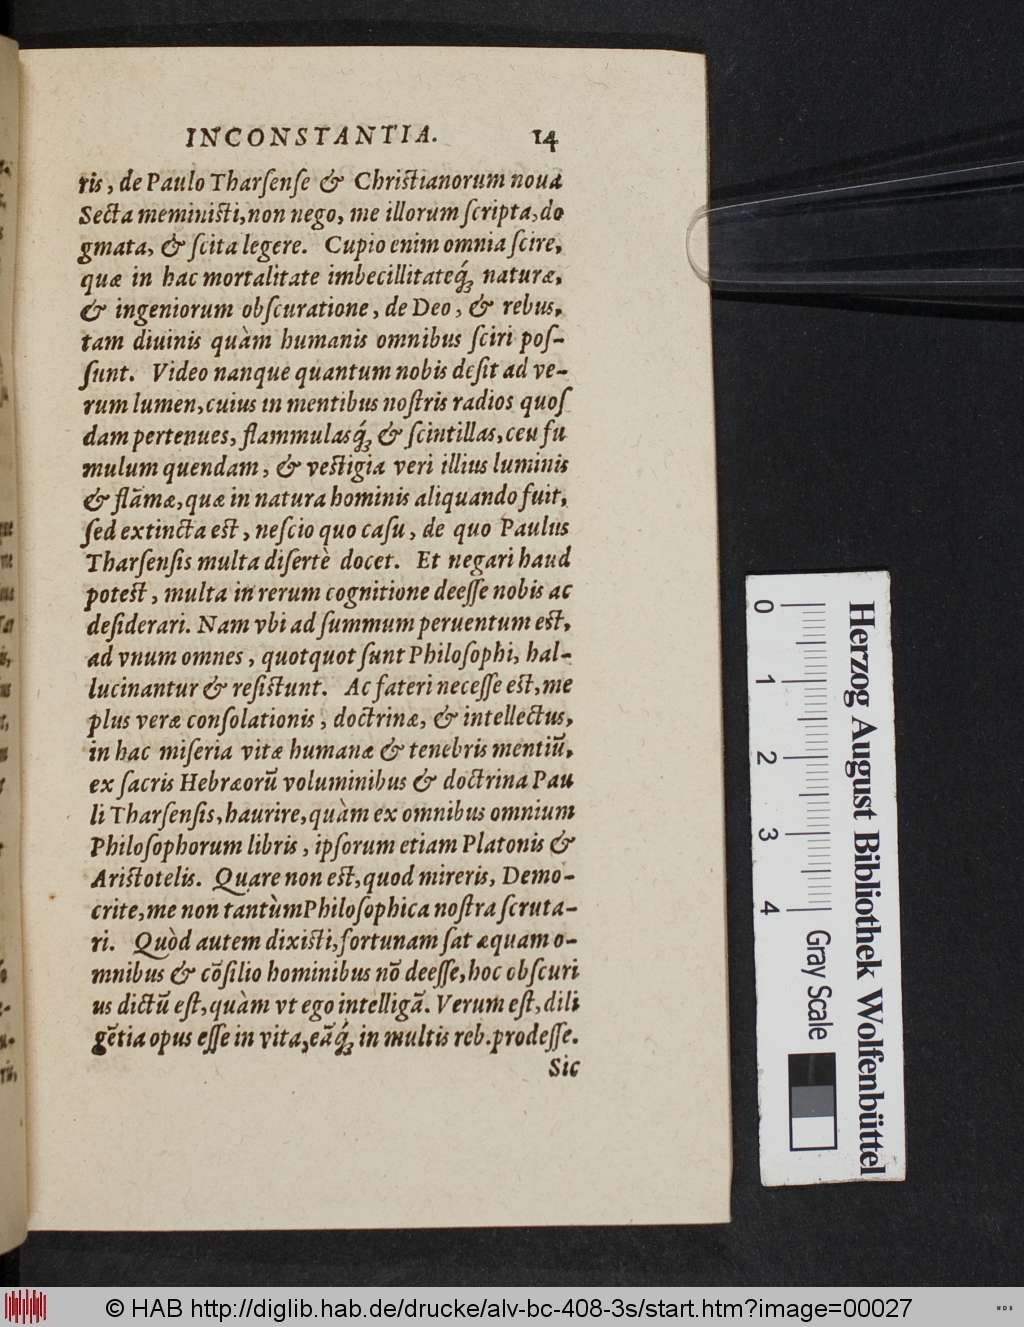 INCONSTANTIA. 14
ris, de Paulo Tharſenſe & Chriſtianorum noua
Secta meminiſti, non nego, me illorum ſcripta, do
gmata, & ſcita legere. Cupio enim omnia ſcire,
quæ in hac mortalitate imbecillitateq́ꝫ naturæ,
& ingeniorum obſcuratione, de Deo, & rebus,
tam diuinis quàm humanis omnibus ſciri poſ-
ſunt. Video nanque quantum nobis deſit ad ve-
rum lumen, cuius in mentibus noſtris radios quoſ
dam pertenues, flammulasq́ꝫ & ſcintillas, ceu fu
mulum quendam, & veſtigia veri illius luminis
& flãmæ, quæ in natura hominis aliquando fuit,
ſed extincta eſt, neſcio quo caſu, de quo Paulus
Tharſenſis multa diſertè docet. Et negari haud
poteſt, multa in rerum cognitione deeſſe nobis ac
deſiderari. Nam vbi ad ſummum peruentum eſt,
ad vnum omnes, quotquot ſunt Philoſophi, hal-
lucinantur & reſiſtunt. Ac fateri neceſſe eſt, me
plus veræ conſolationis, doctrinæ, & intellectus,
in hac miſeria vitæ humanæ & tenebris mentiũ,
ex ſacris Hebræorũ voluminibus & doctrina Pau
li Tharſenſis, haurire, quàm ex omnibus omnium
Philoſophorum libris, ipſorum etiam Platonis &
Ariſtotelis. Quare non eſt, quod mireris, Demo-
crite, me non tantùm Philoſophica noſtra ſcruta-
ri. Quòd autem dixiſti, fortunam ſat æquam o-
mnibus & cõſilio hominibus nõ deeſſe, hoc obſcuri
us dictũ eſt, quàm vt ego intelligã. Verum eſt, dili
gẽtia opus eſſe in vita, eãq́ꝫ in multis reb. prodeſſe.
Sic
Herzog August Bibliothek Wolfenbüttel
0 1 2 3 4 Gray Scale
© HAB http://diglib.hab.de/drucke/alv-bc-408-3s/start.htm?image=00027
WDB